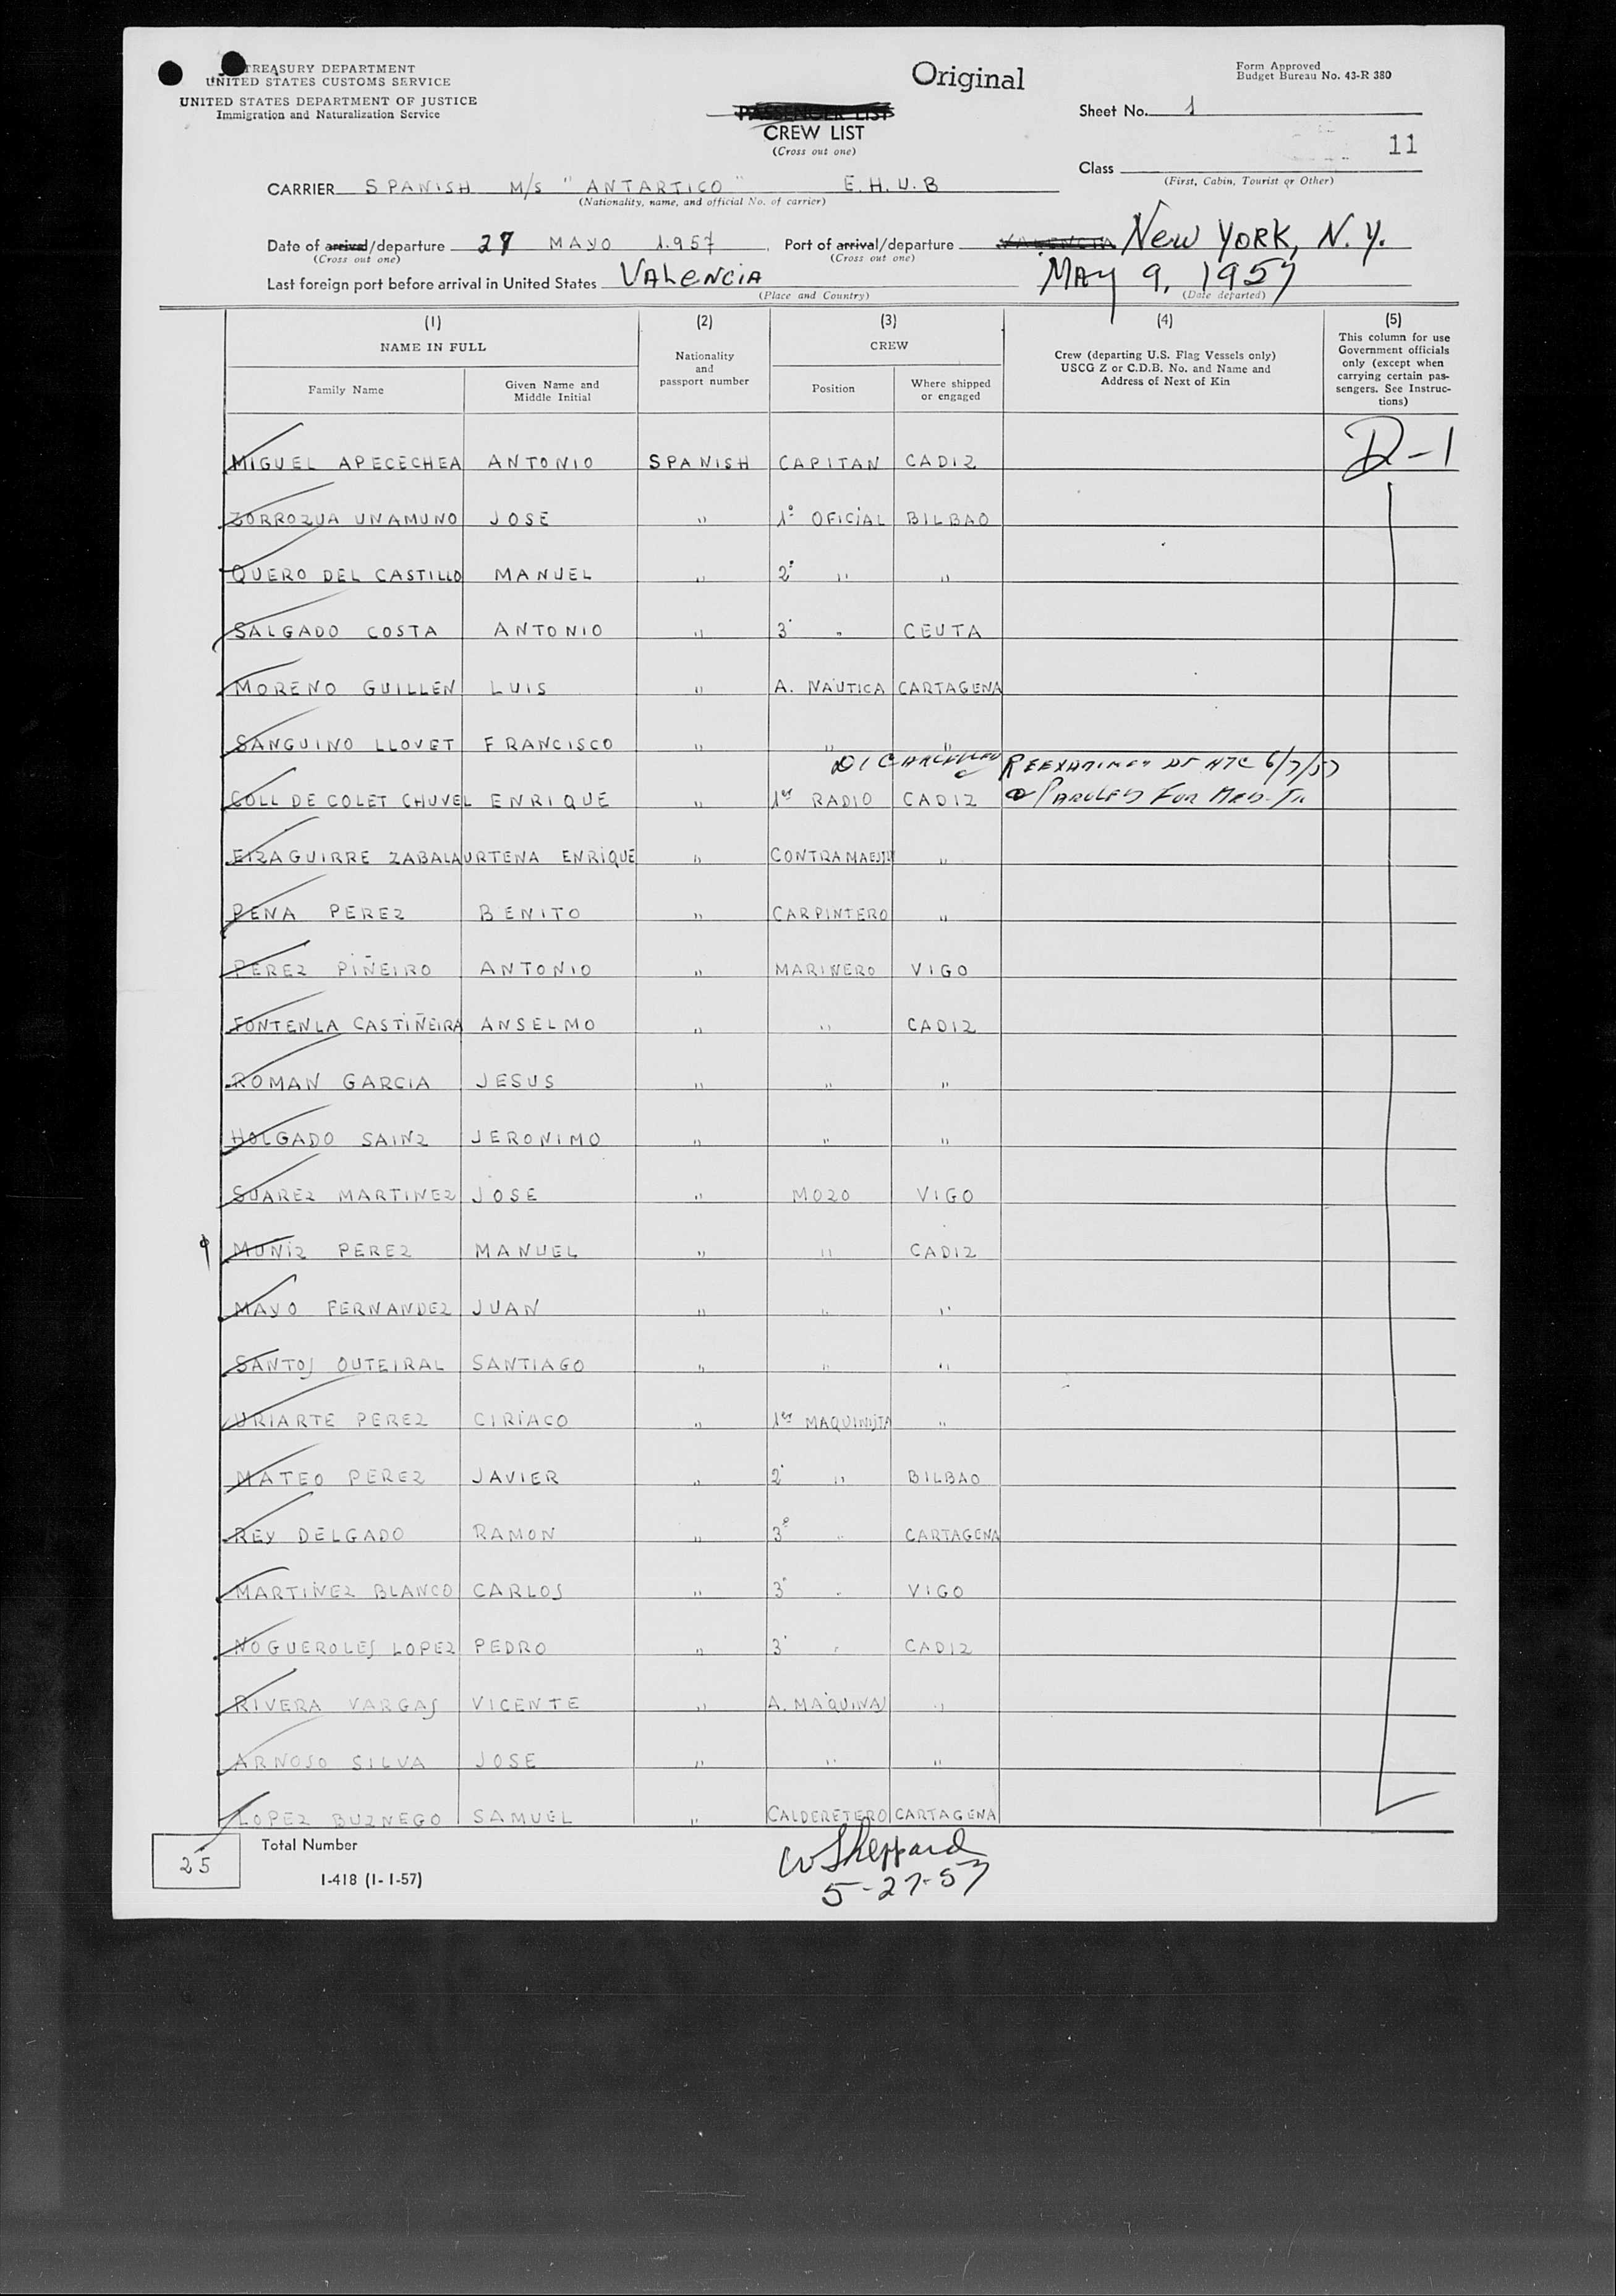 TREASURY DEPARTMENT
UNITED STATES CUSTOMS SERVICE
UNITED STATES DEPARTMENT OF JUSTICE
Immigration and Naturalization Service
Original
Form Approved
Budget Bureau No. 43-R 380
PASSENGER LIST
CREW LIST
(Cross out one)
Sheet No. 1
11
Class
(First, Cabin, Tourist or Other)
CARRIER SPANISH M/S "ANTARTICO" E.H.U.B
(Nationality, name, and official No. of carrier)
Date of arrival/departure 27 MAYO 1.957, Port of arrival/departure VALENCIA New YORK, N.Y.
(Cross out one) (Cross out one)
Last foreign port before arrival in United States VALENCIA MAY 9, 1957
(Place and Country) (Date departed)
(1) (2) (3) (4) (5)
NAME IN FULL Nationality and passport number CREW Crew (departing U.S. Flag Vessels only) USCG Z or C.D.B. No. and Name and Address of Next of Kin This column for use Government officials only (except when carrying certain passengers. See Instructions)
Family Name Given Name and Middle Initial Position Where shipped or engaged
MIGUEL APECECHEA ANTONIO SPANISH CAPITAN CADIZ D-1
ZORROZUA UNAMUNO JOSE " 1º OFICIAL BILBAO
QUERO DEL CASTILLO MANUEL " 2º " "
SALGADO COSTA ANTONIO " 3º " CEUTA
MORENO GUILLEN LUIS " A. NÁUTICA CARTAGENA
SANGUINO LLOVET FRANCISCO " " "
D1 6/7/57
COLL DE COLET CHUVEL ENRIQUE " 1er RADIO CADIZ PAROLED FOR
EIZAGUIRRE ZABALAURTENA ENRIQUE " CONTRAMAESTRE "
PENA PEREZ BENITO " CARPINTERO "
PEREZ PIÑEIRO ANTONIO " MARINERO VIGO
FONTENLA CASTIÑEIRA ANSELMO " " CADIZ
ROMAN GARCIA JESUS " " "
HOLGADO SAINZ JERONIMO " " "
SUAREZ MARTINEZ JOSE " MOZO VIGO
MUÑIZ PEREZ MANUEL " " CADIZ
MAYO FERNANDEZ JUAN " " "
SANTOS OUTEIRAL SANTIAGO " " "
URIARTE PEREZ CIRIACO " 1er MAQUINISTA "
MATEO PEREZ JAVIER " 2º " BILBAO
REY DELGADO RAMON " 3º " CARTAGENA
MARTINEZ BLANCO CARLOS " 3º " VIGO
NOGUEROLES LOPEZ PEDRO " 3º " CADIZ
RIVERA VARGAS VICENTE " A. MÁQUINAS "
ARNOSO SILVA JOSE " " "
LOPEZ BUZNEGO SAMUEL " CALDERETERO CARTAGENA
25 Total Number
I-418 (1-1-57)
W Sheppard
5-27-57